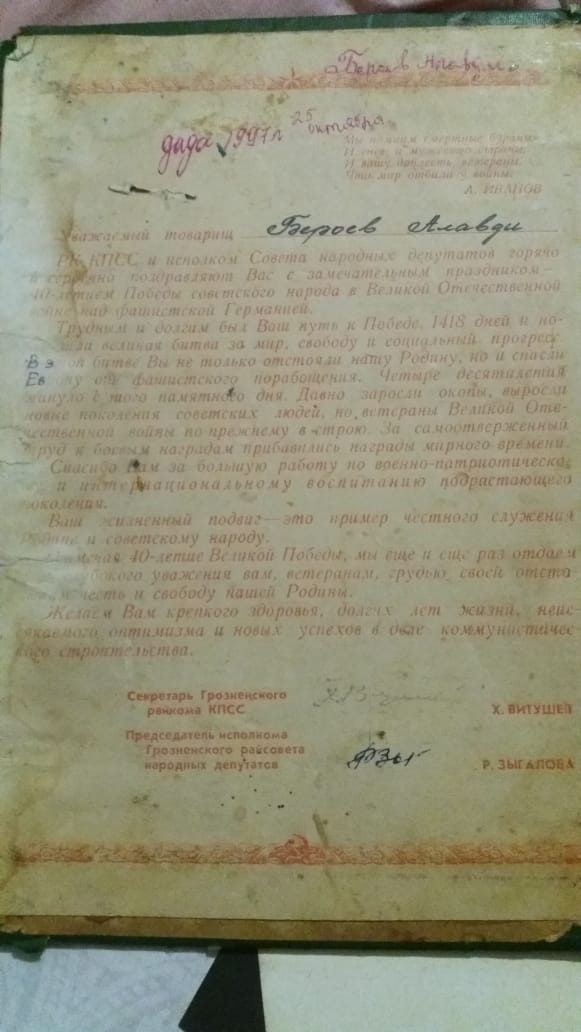 дада 1991 г 25 октября
Мы помним смертные бураны
И вашу доблесть, ветераны,
Что мир отбили у войны.
А. ИВАНОВ
Уважаемый товарищ Бероев Алавди
РК КПСС и исполком Совета народных депутатов горячо
и сердечно поздравляют Вас с замечательным праздником—
40-летием Победы советского народа в Великой Отечественной
войне над фашистской Германией.
Трудным и долгим был Ваш путь к Победе. 1418 дней и но-
великая битва за мир, свободу и социальный прогресс.
В э ой битве Вы не только отстояли нашу Родину, но и спасли
Ев опу от фашистского порабощения. Четыре десятилетия
минуло с того памятного дня. Давно заросли окопы, выросли
новые поколения советских людей, но ветераны Великой Оте-
чественной войны по-прежнему в строю. За самоотверженный
труд к боевым наградам прибавились награды мирного времени.
Спасибо Вам за большую работу по военно-патриотическо-
и интернациональному воспитанию подрастающего
поколения.
Ваш жизненный подвиг—это пример честного служения
Родине и советскому народу.
40-летие Великой Победы, мы еще и еще раз отдаем
глубокого уважения вам, ветеранам, грудью своей отсто-
честь и свободу нашей Родины.
Желаем Вам крепкого здоровья, долгих лет жизни, неис-
сякаемого оптимизма и новых успехов в деле коммунистичес-
кого строительства.
Секретарь Грозненского
райкома КПСС
Х. ВИТУШЕВ
Председатель исполкома
Грозненского райсовета
народных депутатов
Р. ЗЫГАЛОВА